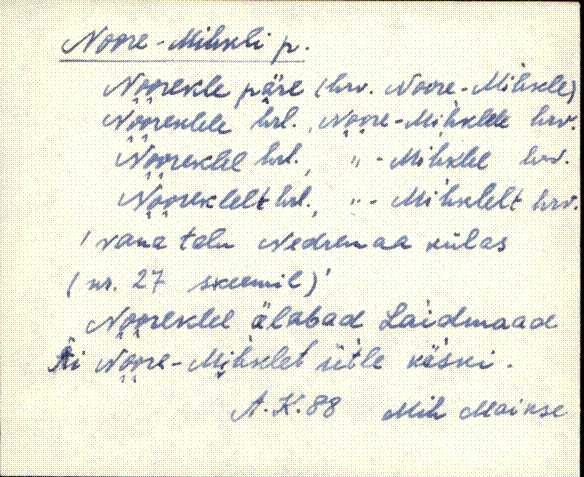 Noore-Mihkli p.
Noorekle päre (hrv. Noore-Mihkle)
Nooreklele hrl., Noore-Mihklele hrv.
Nooreklel hrl., " - Mihklel hrv.
Nooreklelt hrl., " - Mihklelt hrv.
' vana talu Nedremaa külas
(nr. 27 skeemil)'
Nooreklel älabad Laidmaad
Ai Noore-Mihklet ütle käski.
A.K. 88 Mih Mainse